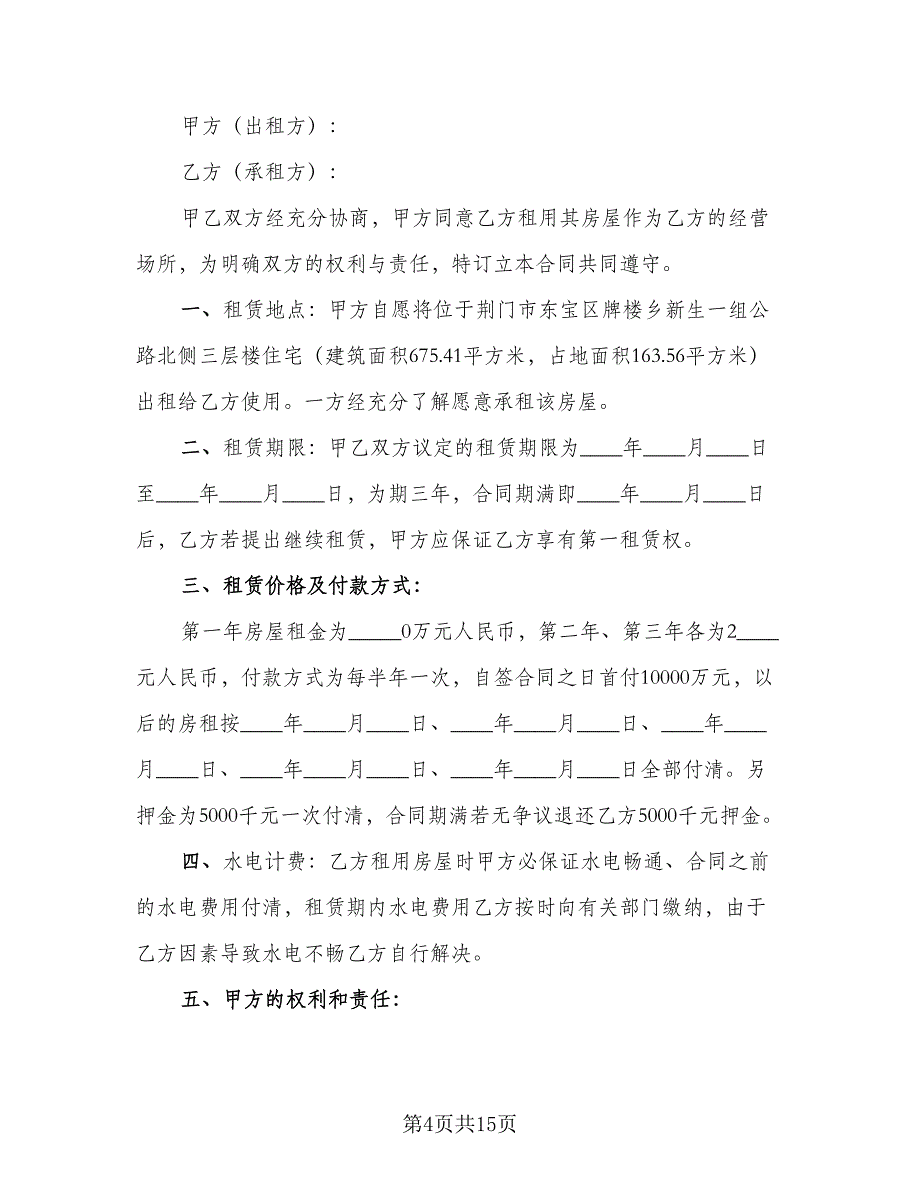 甲方（出租方）：
乙方（承租方）：
甲乙双方经充分协商，甲方同意乙方租用其房屋作为乙方的经营
场所，为明确双方的权利与责任，特订立本合同共同遵守。
一、租赁地点：甲方自愿将位于荆门市东宝区牌楼乡新生一组公
路北侧三层楼住宅（建筑面积675.41平方米，占地面积163.56平方米）
出租给乙方使用。一方经充分了解愿意承租该房屋。
二、租赁期限：甲乙双方议定的租赁期限为____年____月____日
至____年____月____日，为期三年，合同期满即____年____月____日
后，乙方若提出继续租赁，甲方应保证乙方享有第一租赁权。
三、租赁价格及付款方式：
第一年房屋租金为_____0万元人民币，第二年、第三年各为2____
元人民币，付款方式为每半年一次，自签合同之日首付10000万元，以
后的房租按____年____月____日、____年____月____日、____年____
月____日、____年____月____日、____年____月____日全部付清。另
押金为5000千元一次付清，合同期满若无争议退还乙方5000千元押金。
四、水电计费：乙方租用房屋时甲方必保证水电畅通、合同之前
的水电费用付清，租赁期内水电费用乙方按时向有关部门缴纳，由于
乙方因素导致水电不畅乙方自行解决。
五、甲方的权利和责任：
第4页共15页